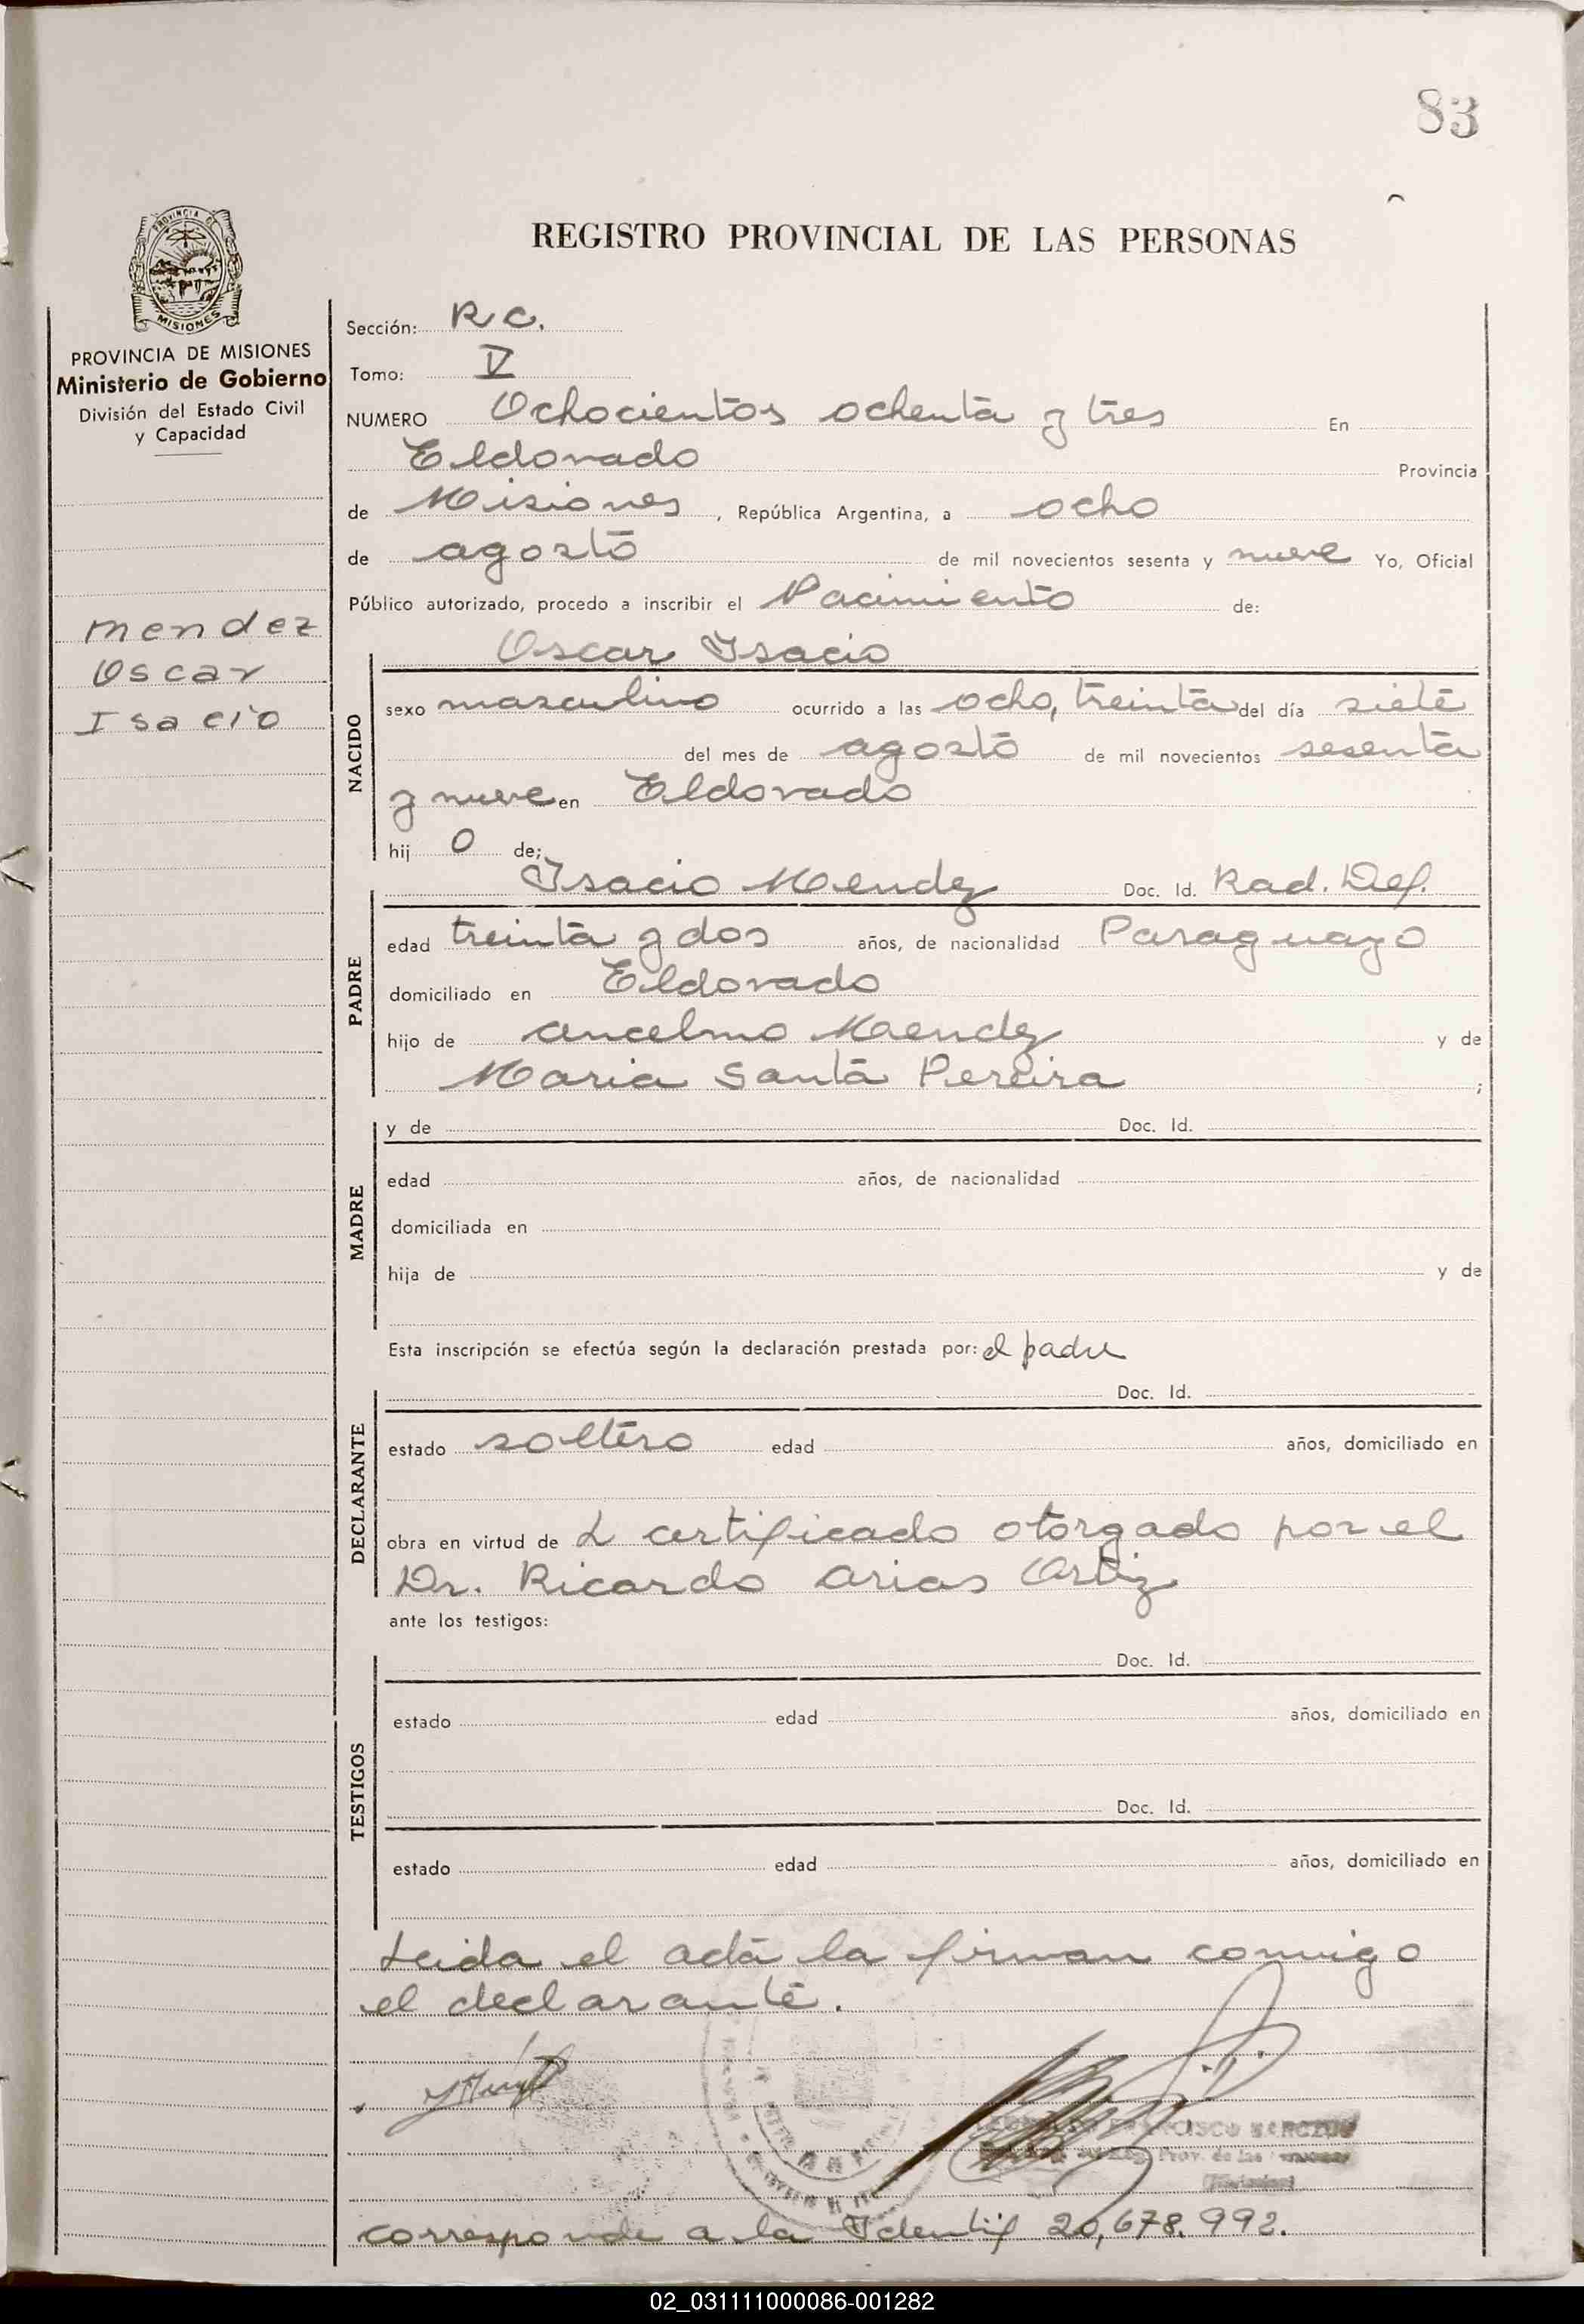 83
PROVINCIA DE
MISIONES
PROVINCIA DE MISIONES
Ministerio de Gobierno
División del Estado Civil
y Capacidad
mendez
Oscar
Isacio
REGISTRO PROVINCIAL DE LAS PERSONAS
Sección: R C.
Tomo: V
NUMERO Ochocientos ochenta y tres En
Eldorado Provincia
de Misiones, República Argentina, a ocho
de agosto de mil novecientos sesenta y nueve Yo, Oficial
Público autorizado, procedo a inscribir el Nacimiento de:
NACIDO
Oscar Isacio
sexo masculino ocurrido a las ocho, treinta del día siete
del mes de agosto de mil novecientos sesenta
y nueve en Eldorado
hij o de;
PADRE
Isacio Mendez Doc. Id. Rad. Def.
edad treinta y dos años, de nacionalidad Paraguayo
domiciliado en Eldorado
hijo de ancelmo Mendez y de
Maria Santa Pereira ;
MADRE
y de Doc. Id.
edad años, de nacionalidad
domiciliada en
hija de y de
Esta inscripción se efectúa según la declaración prestada por: el padre
DECLARANTE
Doc. Id.
estado soltero edad años, domiciliado en
obra en virtud de L certificado otorgado por el
Dr. Ricardo arias Ortiz
ante los testigos:
TESTIGOS
Doc. Id.
estado edad años, domiciliado en
Doc. Id.
estado edad años, domiciliado en
Leida el acta la firman conmigo
el declarante.
corresponde a la Identif 20,678.992.
02_031111000086-001282